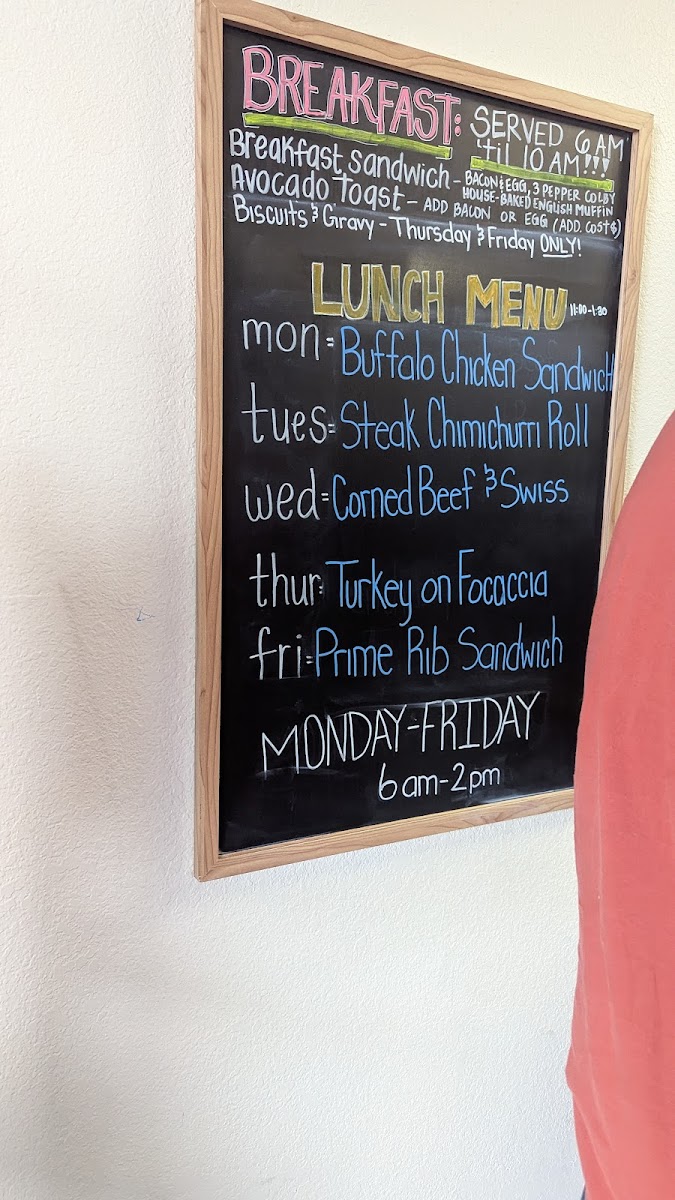 BREAKFAST: SERVED 6 AM
'til 10 AM!!!
Breakfast sandwich - BACON & EGG, 3 PEPPER COLBY
HOUSE-BAKED ENGLISH MUFFIN
Avocado Toast - ADD BACON OR EGG (ADD. COST$)
Biscuits & Gravy - Thursday & Friday ONLY!
LUNCH MENU 11:00-1:30
mon: Buffalo Chicken Sandwich
tues: Steak Chimichurri Roll
wed: Corned Beef & Swiss
thur: Turkey on Focaccia
fri: Prime Rib Sandwich
MONDAY-FRIDAY
6am-2pm